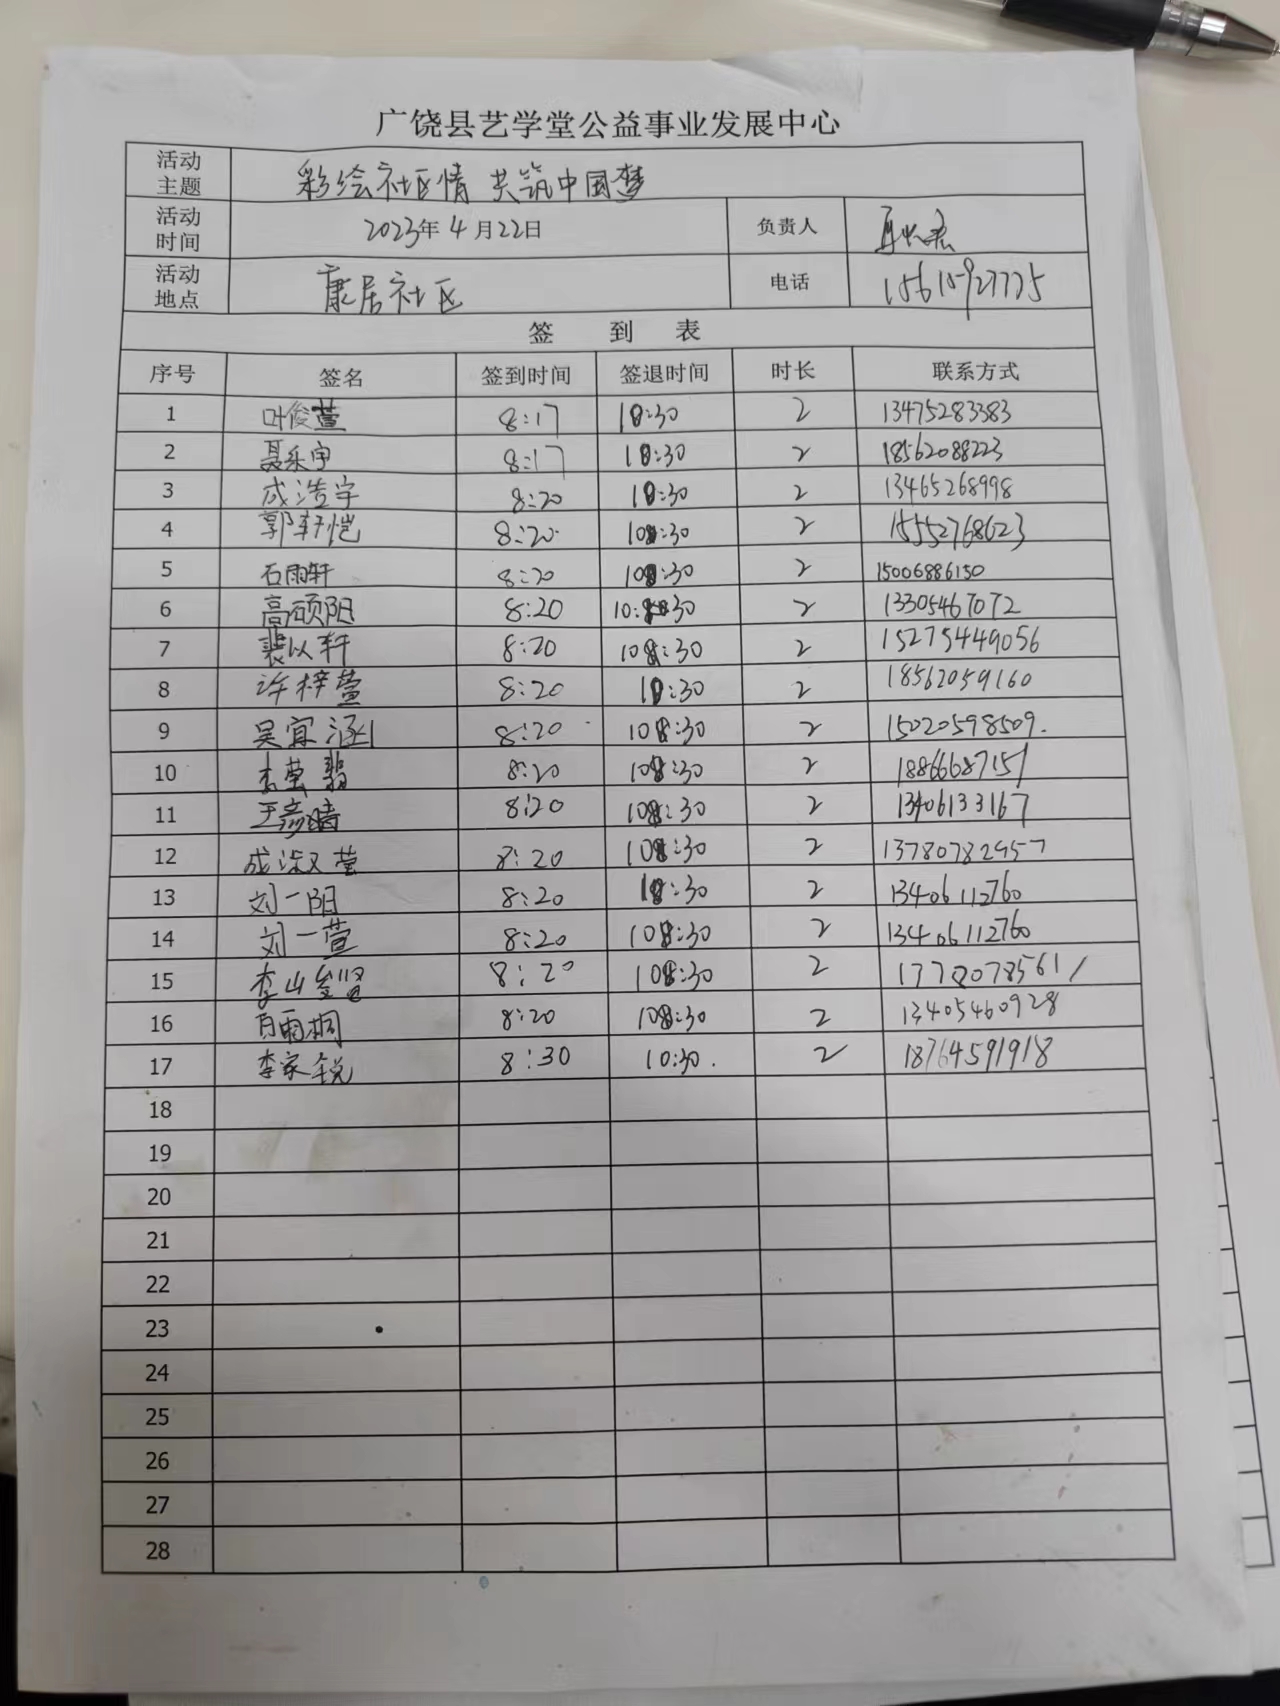 广饶县艺学堂公益事业发展中心
活动主题 彩绘社区情 共筑中国梦
活动时间 2023年4月22日 负责人
活动地点 康居社区 电话 15615927775
签 到 表
序号 签名 签到时间 签退时间 时长 联系方式
1 叶俊萱 8:17 10:30 2 13475283383
2 聂乐宇 8:17 10:30 2 18562088223
3 成浩宇 8:20 10:30 2 13465268998
4 郭轩恺 8:20 10:30 2 15552768623
5 石雨轩 8:20 10:30 2 15006886150
6 高硕阳 8:20 10:30 2 13305467072
7 裴以轩 8:20 10:30 2 15275449056
8 许梓萱 8:20 10:30 2 18562059160
9 吴宜涵 8:20 10:30 2 15020598509.
10 8:20 10:30 2 18866687151
11 王彦晴 8:20 10:30 2 13406133167
12 成淑莹 8:20 10:30 2 13780782957
13 刘一阳 8:20 10:30 2 13406112760
14 刘一萱 8:20 10:30 2 13406112760
15 8:20 10:30 2 17780785611
16 8:20 10:30 2 13405460928
17 李家锐 8:30 10:30. 2 18764591918
18
19
20
21
22
23
24
25
26
27
28